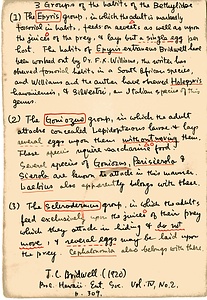 3 Groups of the habits of the Bethylidae
(1) The Epyris group, in which the adult is markedly
fossorial in habits, feeds on insects as well as upon
the juices of the prey, & lays but a single egg per
host. The habits of Epyris extraneus Bridwell have
been worked out by Dr. F.X. Williams, the writer has
observed fossorial habits in a South African species,
and Williams and the author have observed Holepyris
hawaiiensis, & Silvestri, an Italian species of this
genus.
(2) The Goniozus group, in which the adult
attacks concealed Lepidopterous larvae & lays
several eggs upon them without moving them.
These species require saccharine food.
Several species of Goniozus, Parasierola &
Sierola are known to attack in this manner.
Laelius also apparently belongs with these.
(3) The Sclerodermus group, in which the adults
feed exclusively upon the juices of their prey
which they attack in hiding & do not
move, & several eggs may be laid upon
the prey. Cephalonomia also belongs with these.
J.C. Bridwell (1920)
Proc. Hawaii. Ent. Soc. Vol. IV, No. 2,
p. 309.